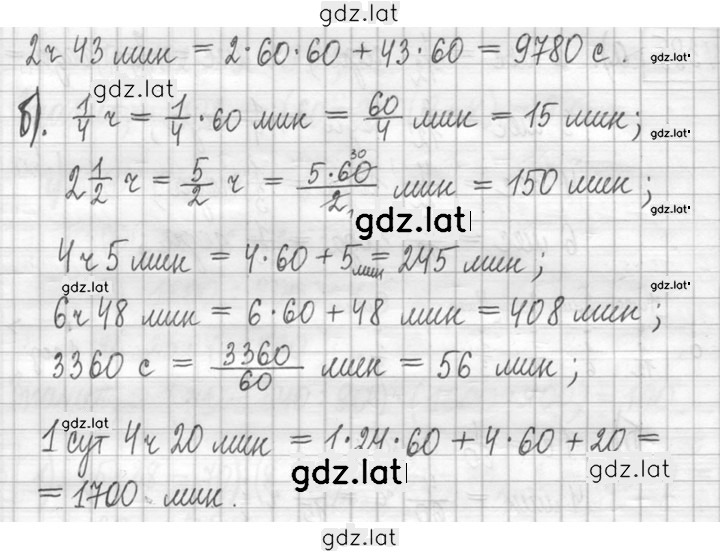 gdz.lat
2 ч 43 мин = 2·60·60 + 43·60 = 9780 с.
gdz.lat
gdz.lat
б). 1/4 ч = 1/4 · 60 мин = 60/4 мин = 15 мин;
gdz.lat
2 1/2 ч = 5/2 ч = 5·60 30/2 1 мин = 150 мин;
gdz.lat
gdz.lat
4 ч 5 мин = 4·60 + 5 мин = 245 мин;
gdz.lat
gdz.lat
6 ч 48 мин = 6·60 + 48 мин = 408 мин;
gdz.lat
3360 с = 3360/60 мин = 56 мин;
gdz.lat
1 сут 4 ч 20 мин = 1·24·60 + 4·60 + 20 =
gdz.lat
gdz.lat
= 1700 мин.
gdz.lat